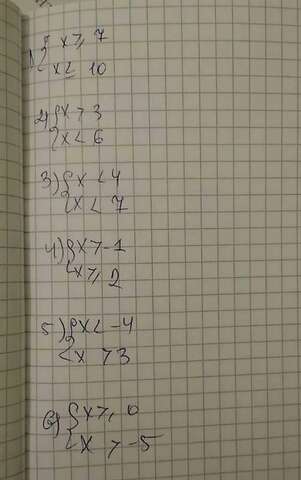 1) { x ⩾ 7
x ≤ 10
2) { x > 3
x < 6
3) { x < 4
x < 7
4) { x > -1
x ⩾ 2
5) { x < -4
x > 3
6) { x ⩾ 0
x > -5